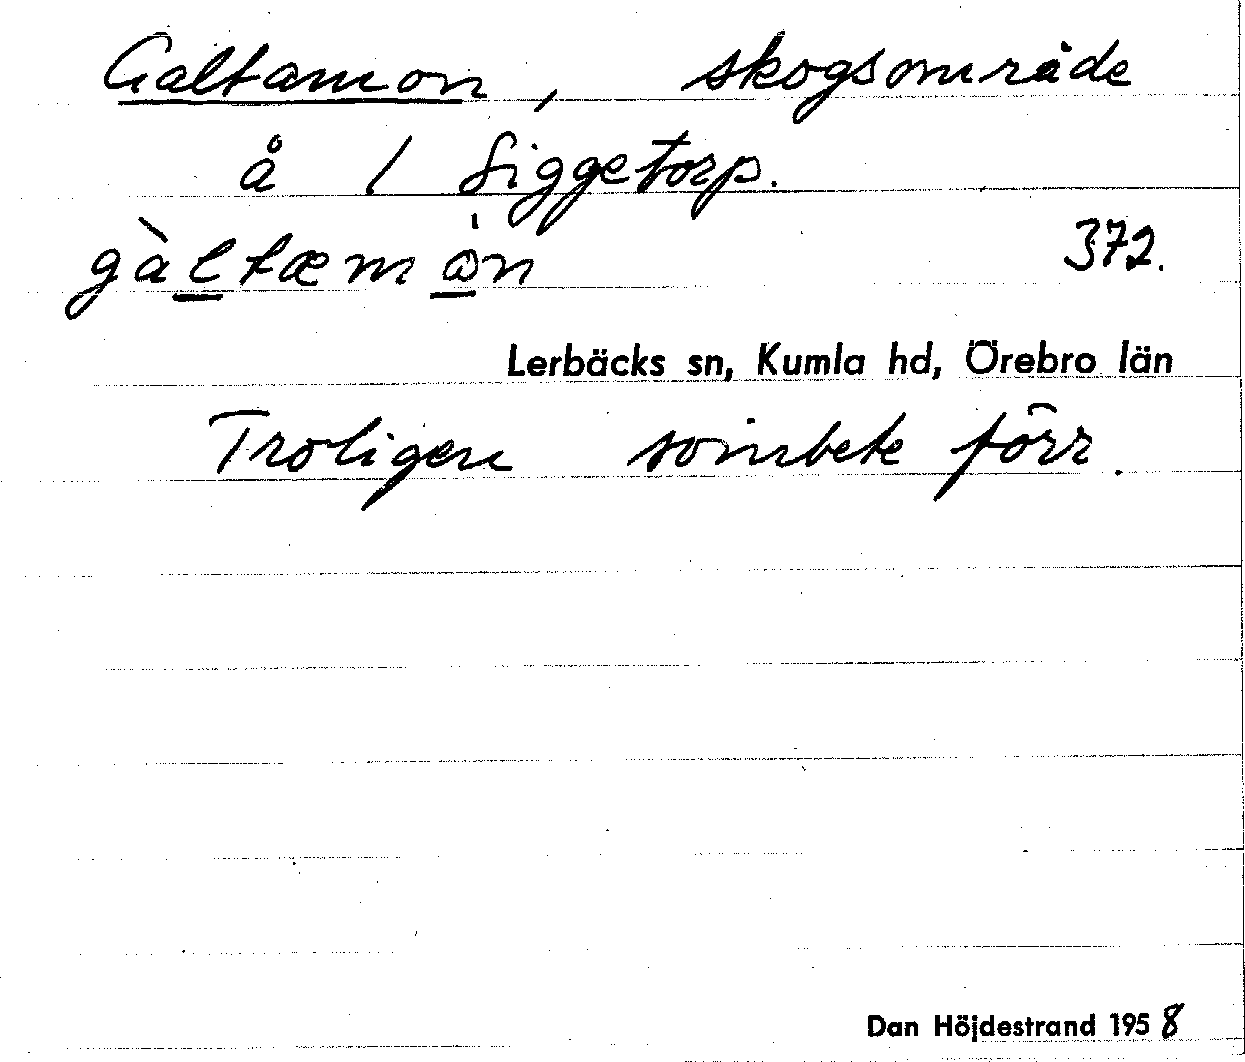 Galtamon, skogsområde
å 1 Siggetorp.
gàltæmòn
372.
Lerbäcks sn, Kumla hd, Örebro län
Troligen svinbete förr.
Dan Höjdestrand 1958